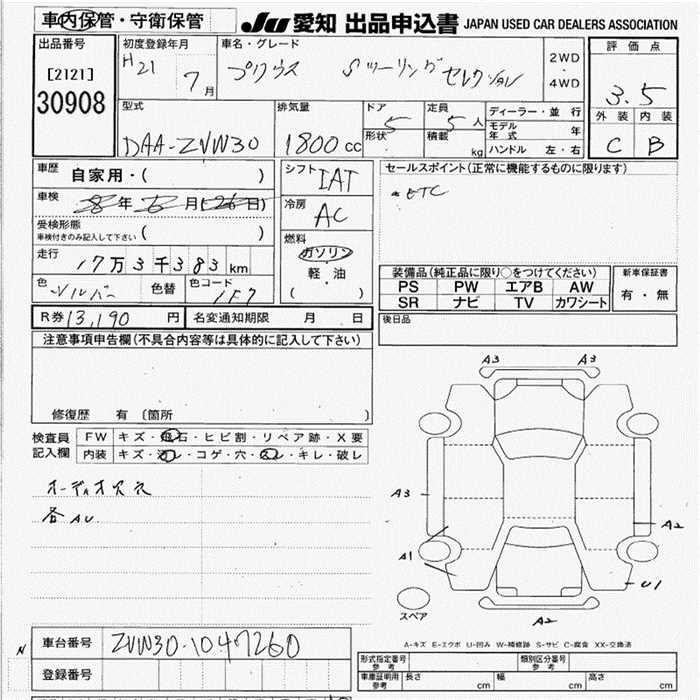 車内保管・守衛保管
JU 愛知 出品申込書 JAPAN USED CAR DEALERS ASSOCIATION
出品番号
[2121]
30908
初度登録年月
H21 7月
車名・グレード
プリウス Sツーリングセレクション
2WD
・
4WD
評価点
3.5
外装 内装
C B
型式
DAA-ZVW30
排気量
1800cc
ドア
5
形状
定員
5人
積載
kg
ディーラー・並行
モデル年式 年
ハンドル 左・右
車歴
自家用・( )
車検
年 月( 日)
受検形態
車検付きのみ記入して下さい ( )
走行
17万3千383km
色
シルバー
色替
色コード
1F7
シフト
IAT
冷房
AC
燃料
ガソリン
軽・油
( )
セールスポイント(正常に機能するものに限ります)
ETC
装備品(純正品に限り○をつけてください)
PS PW エアB AW
SR ナビ TV カワシート
新車保証書
有・無
R券 13,190円
名変通知期限 月 日
後日品
注意事項申告欄(不具合内容等は具体的に記入して下さい)
修復歴 有 〔箇所 〕
検査員記入欄
FW キズ・飛石・ヒビ割・リペア跡・X要
内装 キズ・汚レ・コゲ・穴・スレ・キレ・破レ
オーディオスス
各AU
A3 A3
A3
A2
A1
U1
A2
スペア
A-キズ E-エクボ U-凹み W-補修跡 S-サビ C-腐食 XX-交換済
N
車台番号
ZVW30-1047260
登録番号
形式指定番号 参考
類別区分番号 参考
車庫証明用 参考
長さ cm 幅 cm 高さ cm